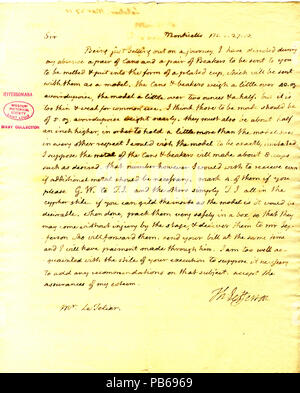 Sir
Monticello Mar. 27. 10.
Being just setting out on a journey, I have directed during
my absence a pair of Cans and a pair of Beakers to be sent to you
to be melted & put into the form of a plated cup, which will be sent
with them as a model. the Cans & beakers weigh a little over 40. oz
avoirdupoise, the model a little over two ounces & a half. but it is
too thin & weak for common use. I think those to be made should be
of 5. oz. avoirdupoise weight exactly. they must also be about half
an inch higher, in order to hold a little more than the model does.
in every other respect I would wish the model to be exactly imitated.
I suppose the metal of the Cans & beakers will make about 8 cups
such as desired. that number however I wish to receive even
if additional metal should be necessary. mark 4 of them if you
please G.W. to T.J. and the others simply T.J. all in the
cypher stile. if you can gild the insides as the model is it would be
desirable. when done, pack them very safely in a box so that they
may come without injury by the stage, & deliver them to mr Jef-
ferson who will forward them. send your bill at the same time
and I will have paiment made through him. I am too well ac-
quainted with the stile of your execution to suppose it necessary
to add any recommendations on that subject. accept the
assurances of my esteem.
Th: Jefferson
Mr. Le Tellier.
JEFFERSONIANA
MISSOURI
HISTORICAL
SOCIETY
BIXBY COLLECTION
alamy
Image ID: PB6969
www.alamy.com